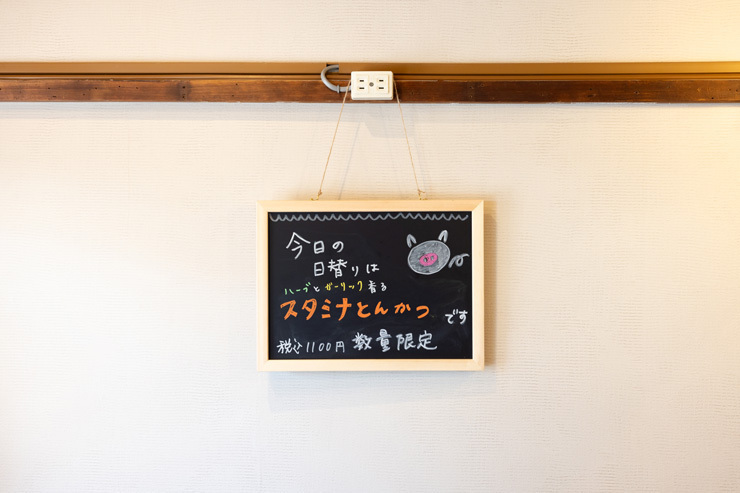 今日の
日替りは
ハーブとガーリック香る
スタミナとんかつです
税込1100円 数量限定